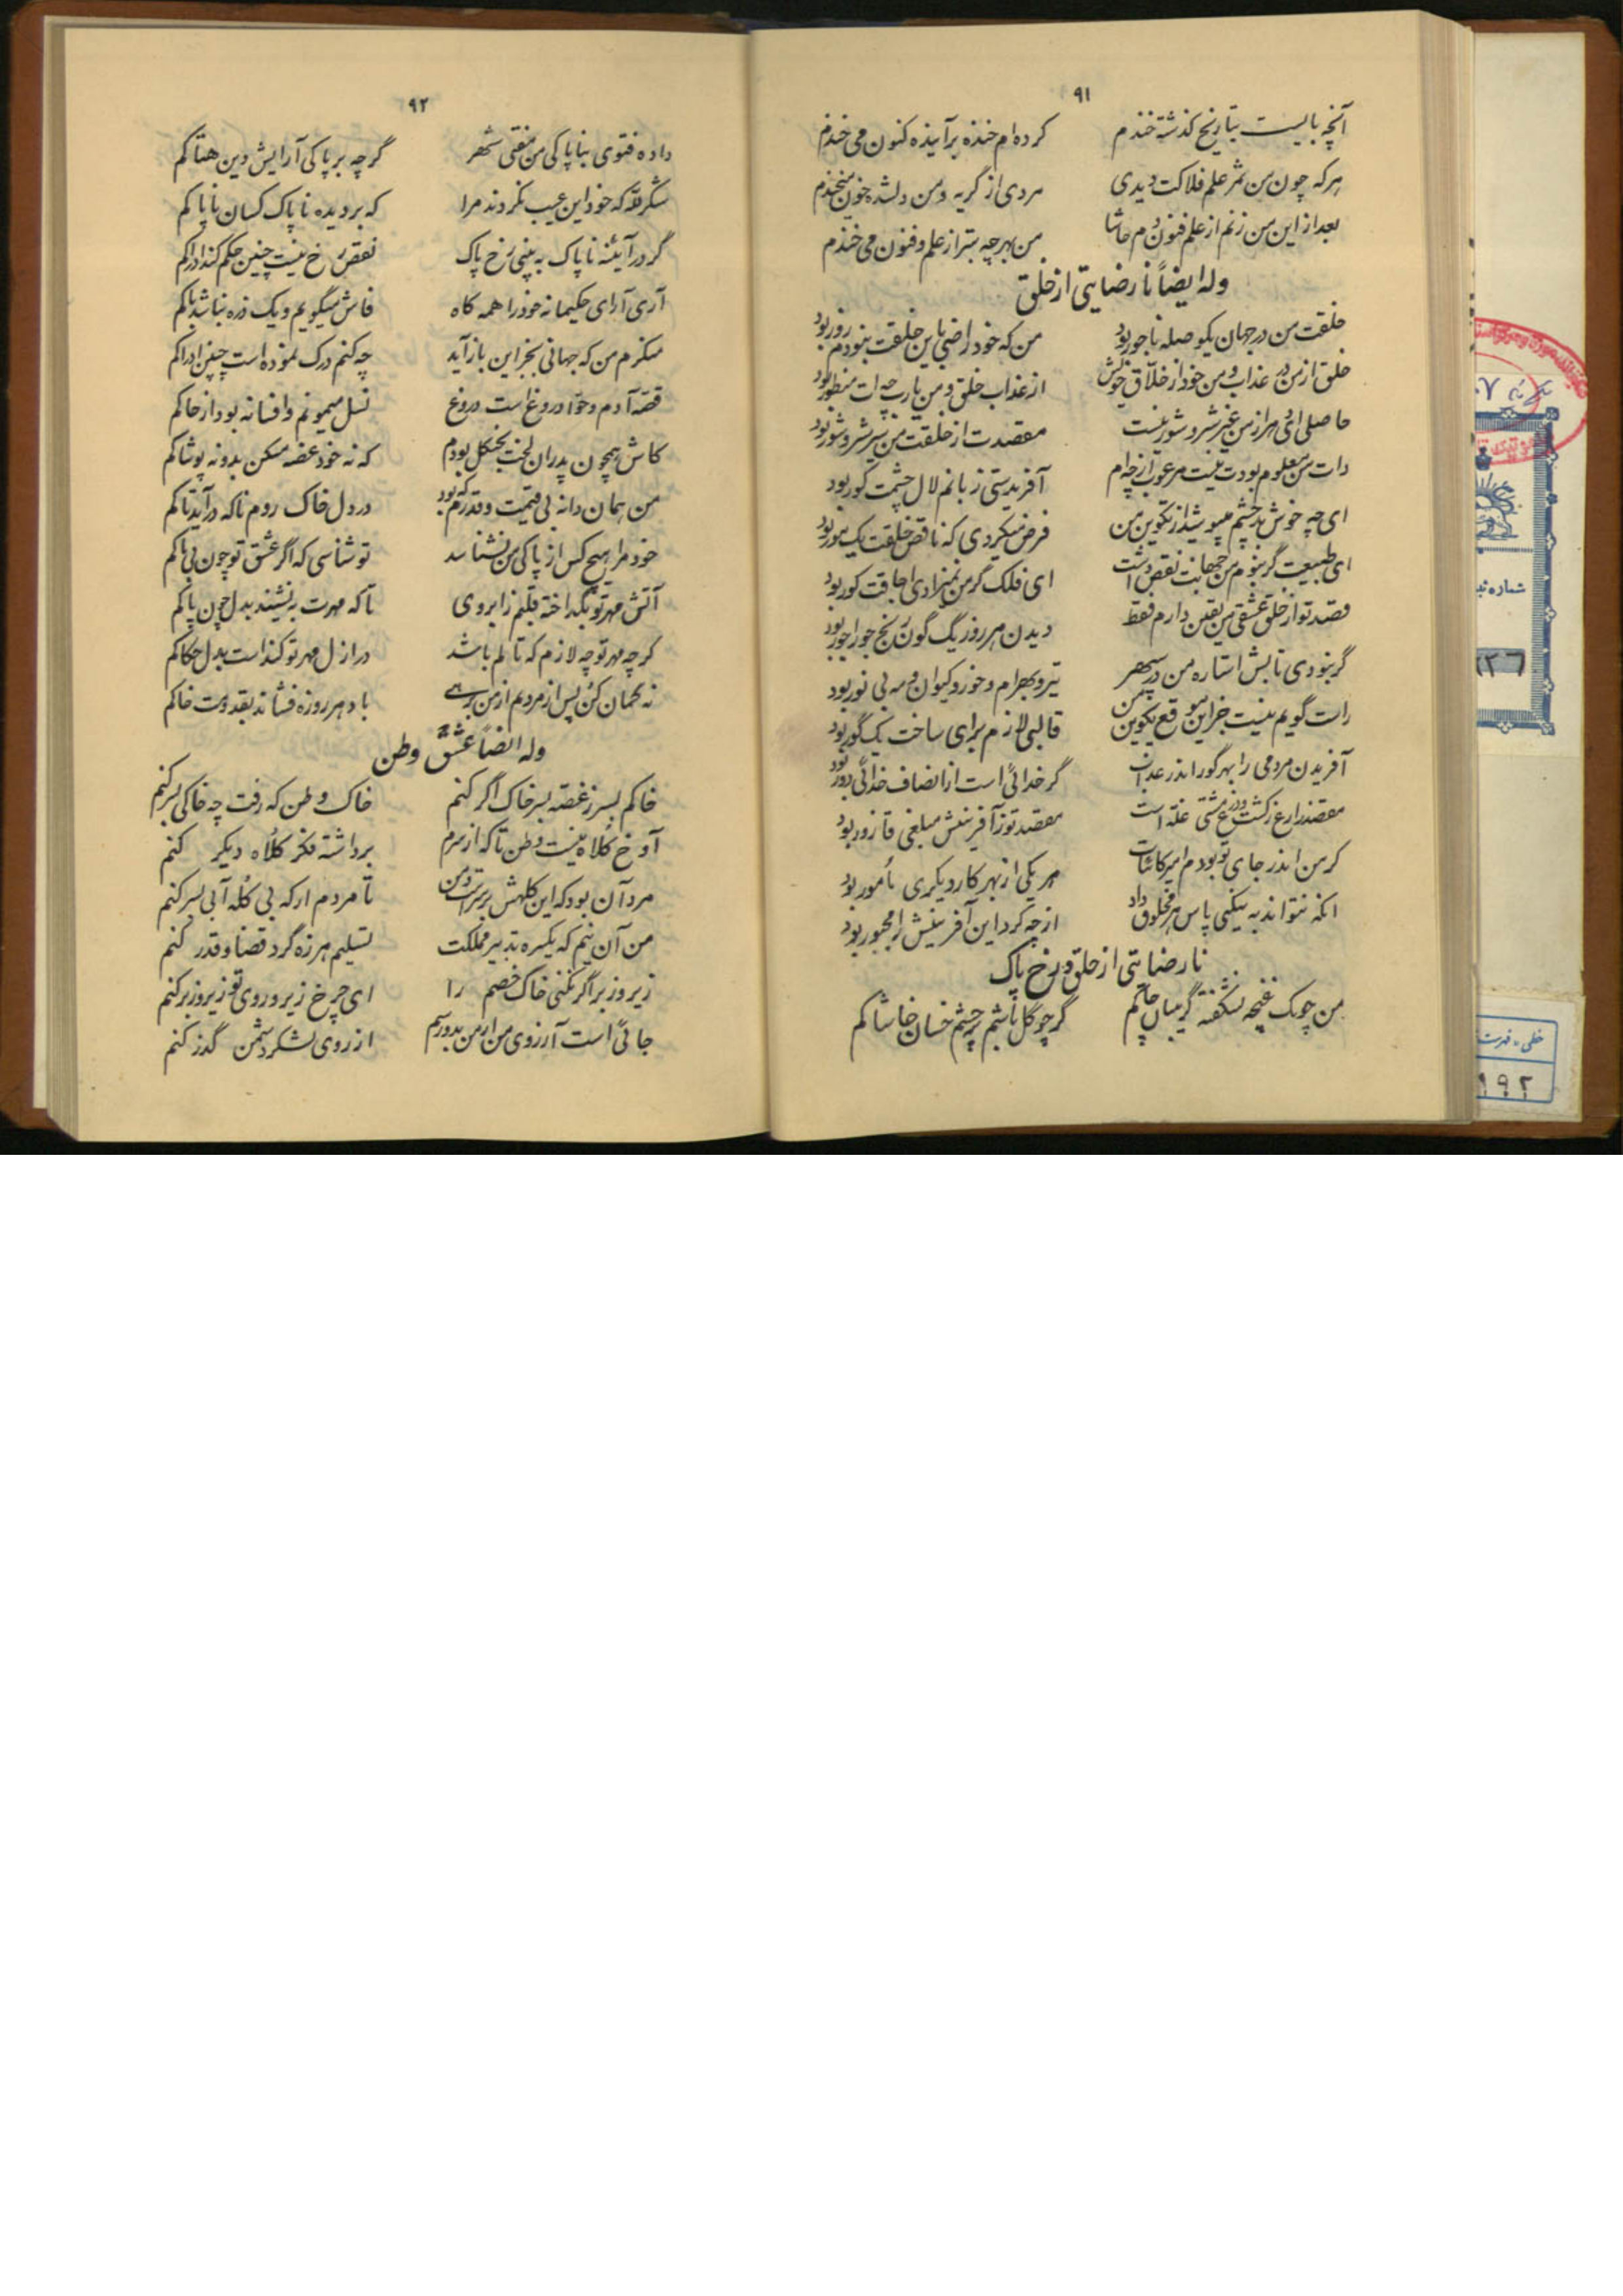 ۹۱
آنچه بایست بتاریخ گذشته خندم
کرده‌ام خنده بر آینده کنون می خندم
هر که چون من ثمر علم فلاکت دیدی
مردی از گریه و من دلشده خون میخندم
بعد از این من زنم از علم و فنون دم حاشا
من بهر چه بتر از علم و فنون می خندم
وله ایضاً نارضایتی از خلق
خلقت من در جهان یک وصله ناجور بود
من که خود راضی باین خلقت نبودم زور بود
خلق از من در عذاب و من خود از خلاق خویش
از عذاب خلق و من یارب چه ات منظور بود
حاصلی ای دهر از من غیر شر و شور نیست
مقصدت از خلقت من سیر شر و شور بود
ذات من معلوم بودت نیست مرغوب از چه‌ام
آفریدستی زبانم لال چشمت کور بود
ای چه خوش بد چشم میپوشید از تکوین من
فرض میکردی که ناقص خلقت یک مور بود
ای طبیعت گر نبودم من جهانت نقص داشت
ای فلک گر من نمیزادی اجاقت کور بود
قصد تو از خلق عشقی من یقین دارم فقط
دیدن هر روز یک گون رنج جوراجور بود
گر نبودی تابش استاره من در سپهر
تیر و بهرام و خور و کیوان و مه بی نور بود
راست گویم نیست جز این موقع تکوین من
قالبی لازم برای ساخت یک گور بود
آفریدن مردمی را بهر گور اندر عذاب
گر خدائی است از انصاف خدائی دور بود
مقصد زارع ز کشت و زرع مشتی غله است
مقصد تو ز آفرینش مبلغی قاذور بود
گر من اندر جای تو بودم امیر کائنات
هر یکی از بهر کار دیگری مأمور بود
آنکه نتواند به نیکی پاس هر مخلوق داد
از چه کرد این آفرینش را مجبور بود
نارضایتی از خلق و رخ پاک
من چو یک غنچه نشکفته گریبان چاکم
گر چو گل باشم بر چشم خسان خاشاکم
۹۲
داده فتوی بناپاکی من مفتی شهر
گر چه بر پاکی آرایش دین هتاکم
شکر لله که خود این عیب نکردند مرا
که بر دیده ناپاک کسان ناپاکم
گر در آیینه ناپاک به بینی رخ پاک
نقص رخ نیست چنین حکم کند ادراکم
آری آرای حکیمانه خود را همه گاه
فاش میگویم و یک ذره نباشد باکم
منکرم من که جهانی بجز این باز آید
چه کنم درک نموده است چنین ادراکم
قصه آدم و حوا دروغ است دروغ
نسل میمونم و افسانه بود از خاکم
کاش همچون پدران لخت بجنگل بودم
که نه خود غصه مسکن بدو نه پوشاکم
من همان دانه بی قیمت و قدرم که بود
در دل خاک روم تا که در آید تاکم
خود مرا هیچ کس از پاکی من نشناسد
تو شناسی که اگر عشق تو چون بی باکم
آتش مهر تو بگداخته قلبم ز ابروی
تا که مهرت به نشیند بدل چون پاکم
گر چه مهر تو چه لازم که تالم باشد
در ازل مهر تو کنداست بدل حکاکم
نه گمان کن پس از مردم از من برهی
باد هر روزه فشاند بقدومت خاکم
وله ایضاً عشق وطن
خاکم بسر ز غصه بسر خاک اگر کنم
خاک وطن که رفت چه خاکی بسر کنم
آوخ کلاه نیست وطن تا که از سرم
برداشتند فکر کلاه دیگر کنم
مرد آن بود که این کلهش بر سر است و من
نامردم ار که بی کله آنی بسر کنم
من آن نیم که یکسره تدبیر مملکت
تسلیم هرزه گرد قضا و قدر کنم
زیر و زبر اگر نکنی خاک خصم را
ای چرخ زیر و روی تو زیر و زبر کنم
جائی است آرزوی من ار من بدو رسم
از روی لشکر دشمن گذر کنم
شماره ثبت
خطی - فهرست
۱۹۲